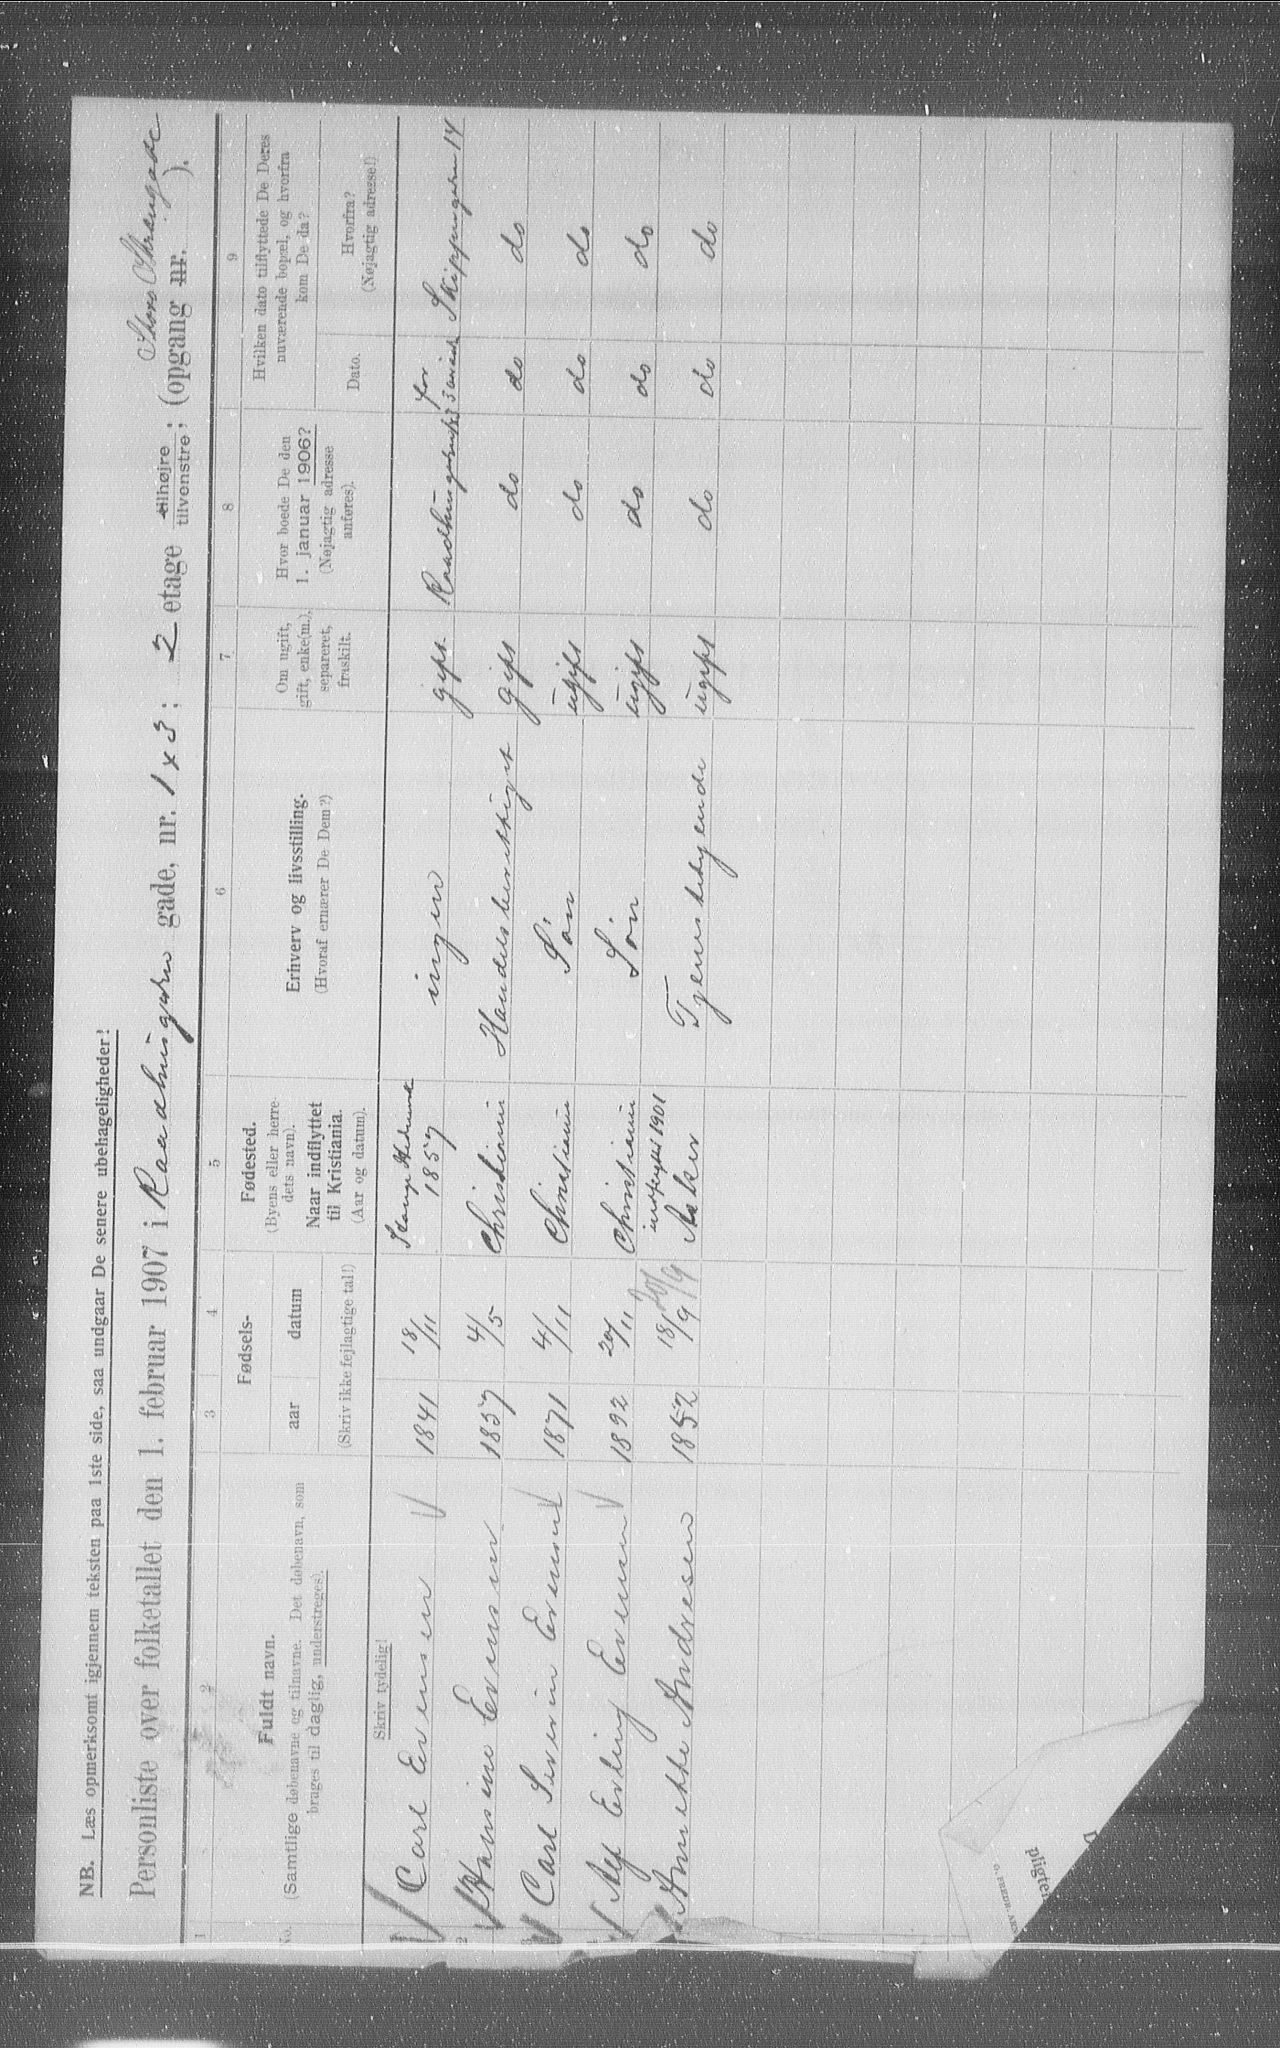 NB. Læs opmerksomt igjennem teksten paa 1ste side, saa undgaar De senere ubehageligheder!
Store Strangade
Personliste over folketallet den 1. februar 1907 i Raadhusgaden gade, nr. 1 x 3; 2 etage tilhøjre tilvenstre; (opgang nr. ).
1 2 3 4 5 6 7 8 9
No.
Fuldt navn.
(Samtlige døbenavne og tilnavne. Det døbenavn, som
bruges til daglig, understreges).
Fødsels-
aar datum
(Skriv ikke fejlagtige tal!)
Fødested.
(Byens eller herre-
dets navn).
Naar indflyttet
til Kristiania.
(Aar og datum).
Erhverv og livsstilling.
(Hvoraf ernærer De Dem?)
Om ugift,
gift, enke(m.),
separeret,
fraskilt.
Hvor boede De den
1. januar 1906?
(Nøjagtig adresse
anføres).
Hvilken dato tilflyttede De Deres
nuværende bopæl, og hvorfra
kom De da?
Dato.
Hvorfra?
(Nøjagtig adresse!)
Skriv tydelig!
Carl Evensen 1841 18/11 Stange Hedemark 1857 ingen gift for 3 Skippergaden 14
2 Hansine Evensen 1857 4/5 Christiania Handelsberettiget gift do do do
3 Carl Severin Evensen 1871 4/11 Christiania Sön ugift do do do
Alf Erling Evensen 1892 20/11 Christiania Sön ugift do do do
Annette Andresen 1852 18/9 indflyttet 1901 Asker Tjenestepige ugift do do do
pligtet